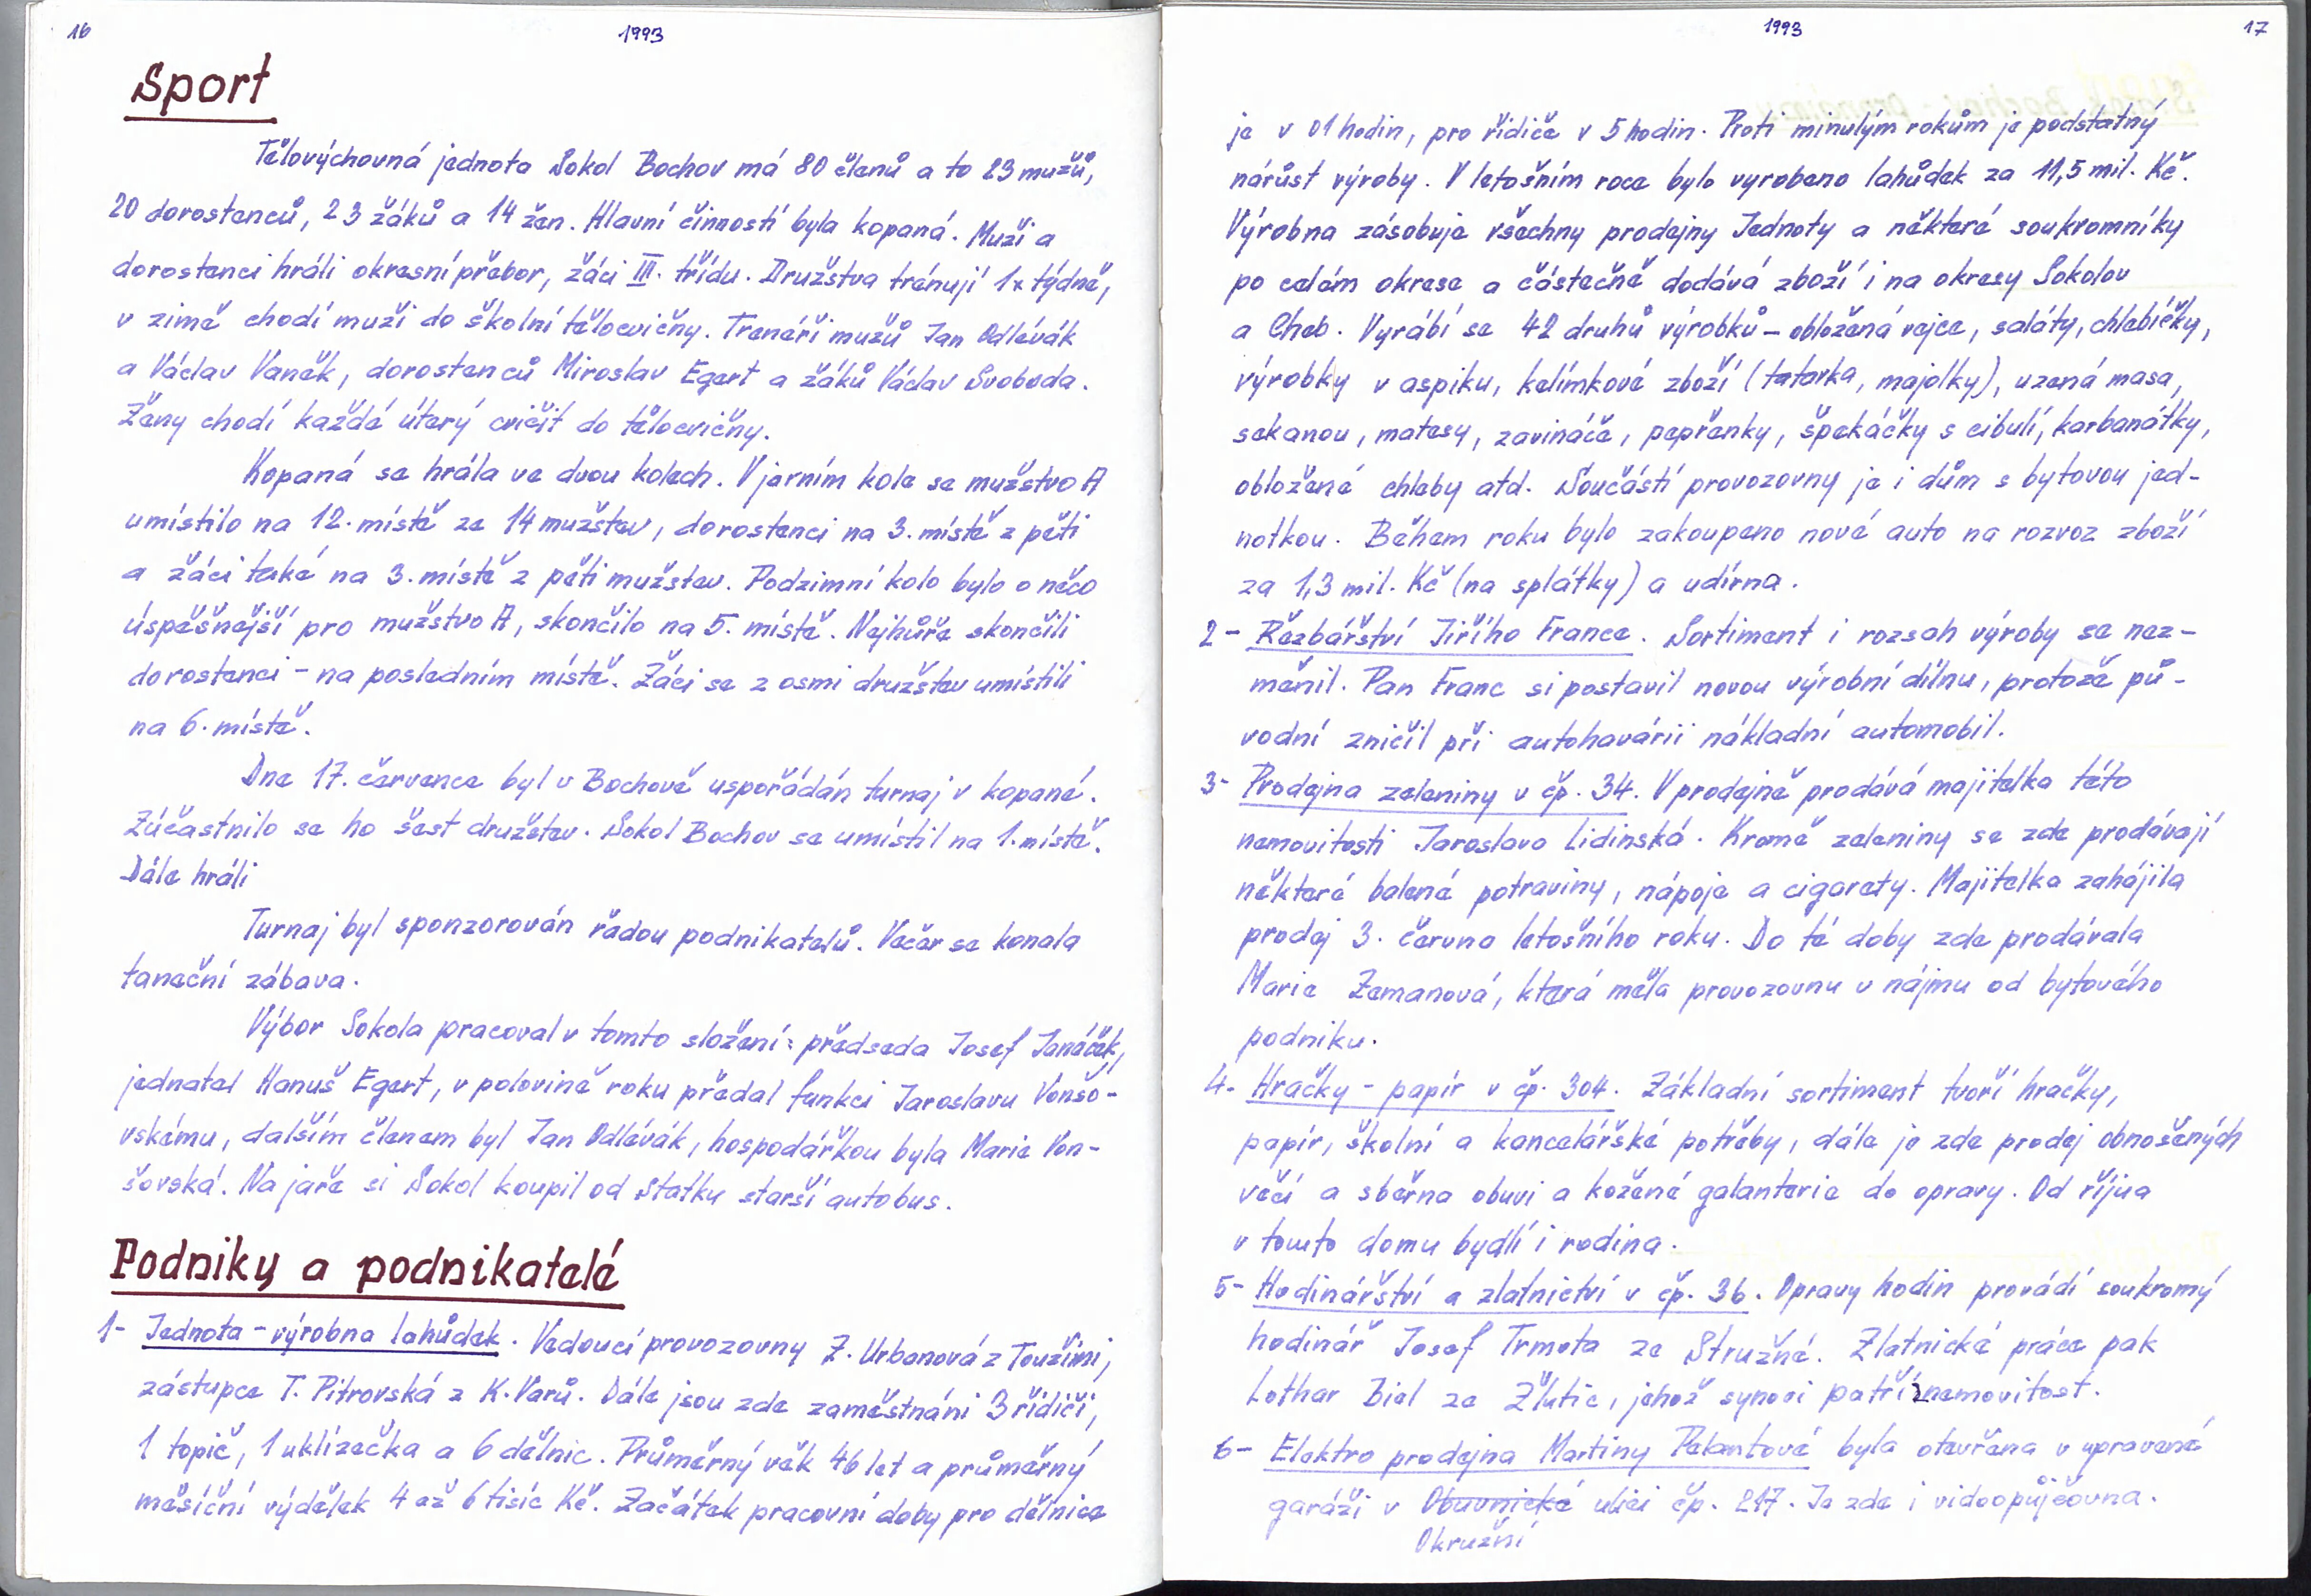 16
1993
Sport
Tělovýchovná jednota Sokol Bochov má 80 členů a to 23 mužů,
20 dorostenců, 23 žáků a 14 žen. Hlavní činností byla kopaná. Muži a
dorostenci hráli okresní přebor, žáci III. třídu. Družstva trénují 1x týdně,
v zimě chodí muži do školní tělocvičny. Trenéři mužů Jan Odlévák
a Václav Vaněk, dorostenců Miroslav Egert a žáků Václav Svoboda.
Ženy chodí každé úterý cvičit do tělocvičny.
Kopaná se hrála ve dvou kolech. V jarním kole se mužstvo A
umístilo na 12. místě ze 14 mužstev, dorostenci na 3. místě z pěti
a žáci také na 3. místě z pěti mužstev. Podzimní kolo bylo o něco
úspěšnější pro mužstvo A, skončilo na 5. místě. Nejhůře skončili
dorostenci - na posledním místě. Žáci se z osmi družstev umístili
na 6. místě.
Dne 17. července byl v Bochově uspořádán turnaj v kopané.
Zúčastnilo se ho šest družstev. Sokol Bochov se umístil na 1. místě.
Dále hráli
Turnaj byl sponzorován řadou podnikatelů. Večer se konala
taneční zábava.
Výbor Sokola pracoval v tomto složení: předseda Josef Janáček,
jednatel Hanuš Egert, v polovině roku předal funkci Jaroslavu Vonšo-
vskému, dalším členem byl Jan Odlévák, hospodářkou byla Marie Von-
šovská. Na jaře si Sokol koupil od Statku starší autobus.
Podniky a podnikatelé
1- Jednota - výrobna lahůdek. Vedoucí provozovny Z. Urbanová z Toužimi,
zástupce T. Pitrovská z K. Varů. Dále jsou zde zaměstnáni 3 řidiči,
1 topič, 1 uklízečka a 6 dělnic. Průměrný věk 46 let a průměrný
měsíční výdělek 4 až 6 tisíc Kč. Začátek pracovní doby pro dělnice
1993
17
je v 01 hodin, pro řidiče v 5 hodin. Proti minulým rokům je podstatný
nárůst výroby. V letošním roce bylo vyrobeno lahůdek za 11,5 mil. Kč.
Výrobna zásobuje všechny prodejny Jednoty a některé soukromníky
po celém okrese a částečně dodává zboží i na okresy Sokolov
a Cheb. Vyrábí se 42 druhů výrobků - obložená vejce, saláty, chlebíčky,
výrobky v aspiku, kelímkové zboží (tatarka, majolky), uzená masa,
sekanou, matesy, zavináče, pepřenky, špekáčky s cibulí, karbanátky,
obložené chleby atd. Součástí provozovny je i dům s bytovou jed-
notkou. Během roku bylo zakoupeno nové auto na rozvoz zboží
za 1,3 mil. Kč (na splátky) a udírna.
2- Řezbářství Jiřího France. Sortiment i rozsah výroby se nez-
měnil. Pan Franc si postavil novou výrobní dílnu, protože pů-
vodní zničil při autohavárii nákladní automobil.
3- Prodejna zeleniny v čp. 34. V prodejně prodává majitelka této
nemovitosti Jaroslava Lidinská. Kromě zeleniny se zde prodávají
některé balené potraviny, nápoje a cigarety. Majitelka zahájila
prodej 3. června letošního roku. Do té doby zde prodávala
Marie Zemanová, která měla provozovnu v nájmu od bytového
podniku.
4- Hračky - papír v čp. 304. Základní sortiment tvoří hračky,
papír, školní a kancelářské potřeby, dále je zde prodej obnošených
věcí a sběrna obuvi a kožené galanterie do opravy. Od října
v tomto domu bydlí i rodina.
5- Hodinářství a zlatnictví v čp. 36. Opravy hodin provádí soukromý
hodinář Josef Trmota ze Stružné. Zlatnické práce pak
Lothar Biel ze Žlutic, jehož synovi patří nemovitost.
6- Elektro prodejna Martiny Pelantové byla otevřena v upravené
garáži v Obuvnické ulici čp. 217. Je zde i videopůjčovna.
Okružní